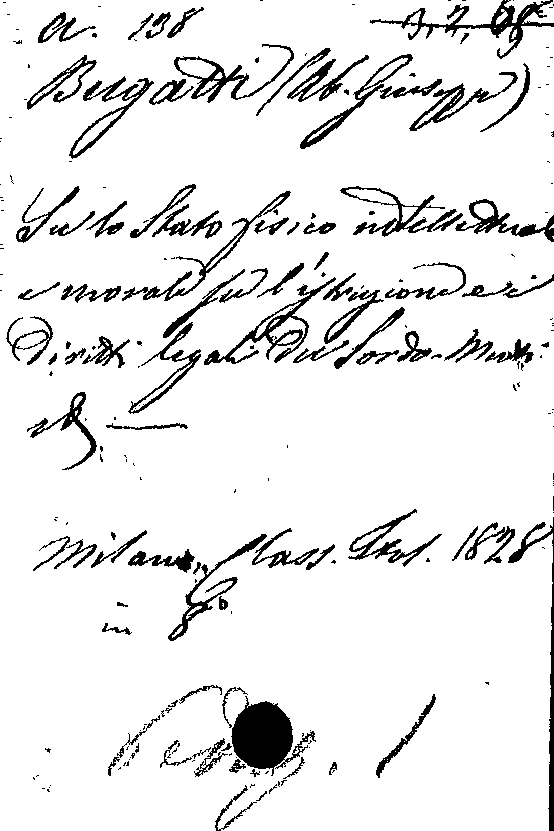 a. 138 3, 2, 68
Bugatti (Ab. Giuseppe)
Su lo Stato fisico intellettuale
e morale su l'istruzione e i
diritti legali dei Sordo-Muti
Milano, Class. Ital. 1828
in 8°